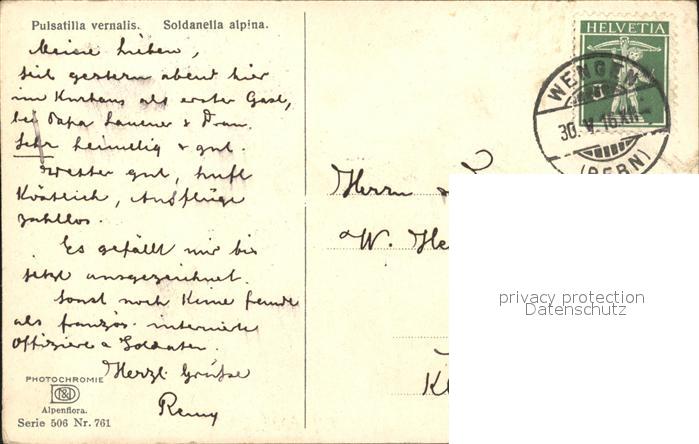 Pulsatilla vernalis. Soldanella alpina.
Meine Lieben,
seit gestern abent hier
im Kurhaus als erster Gast,
bei Papa Lauener & Frau.
Sehr heimelig & gut.
Wetter gut, Luft
Köstlich, Ausflüge
zahllos.
Es gefällt mir bis
jetzt ausgezeichnet.
Sonst noch keine fremde
als französ. internierte
Offiziere & Soldaten.
Herzl. Grüsse
Remy
PHOTOCHROMIE
Alpenflora.
Serie 506 Nr. 761
HELVETIA
WENGEN
30. V. 16. XII-
(BERN)
Herrn &
W. He
K
privacy protection
Datenschutz